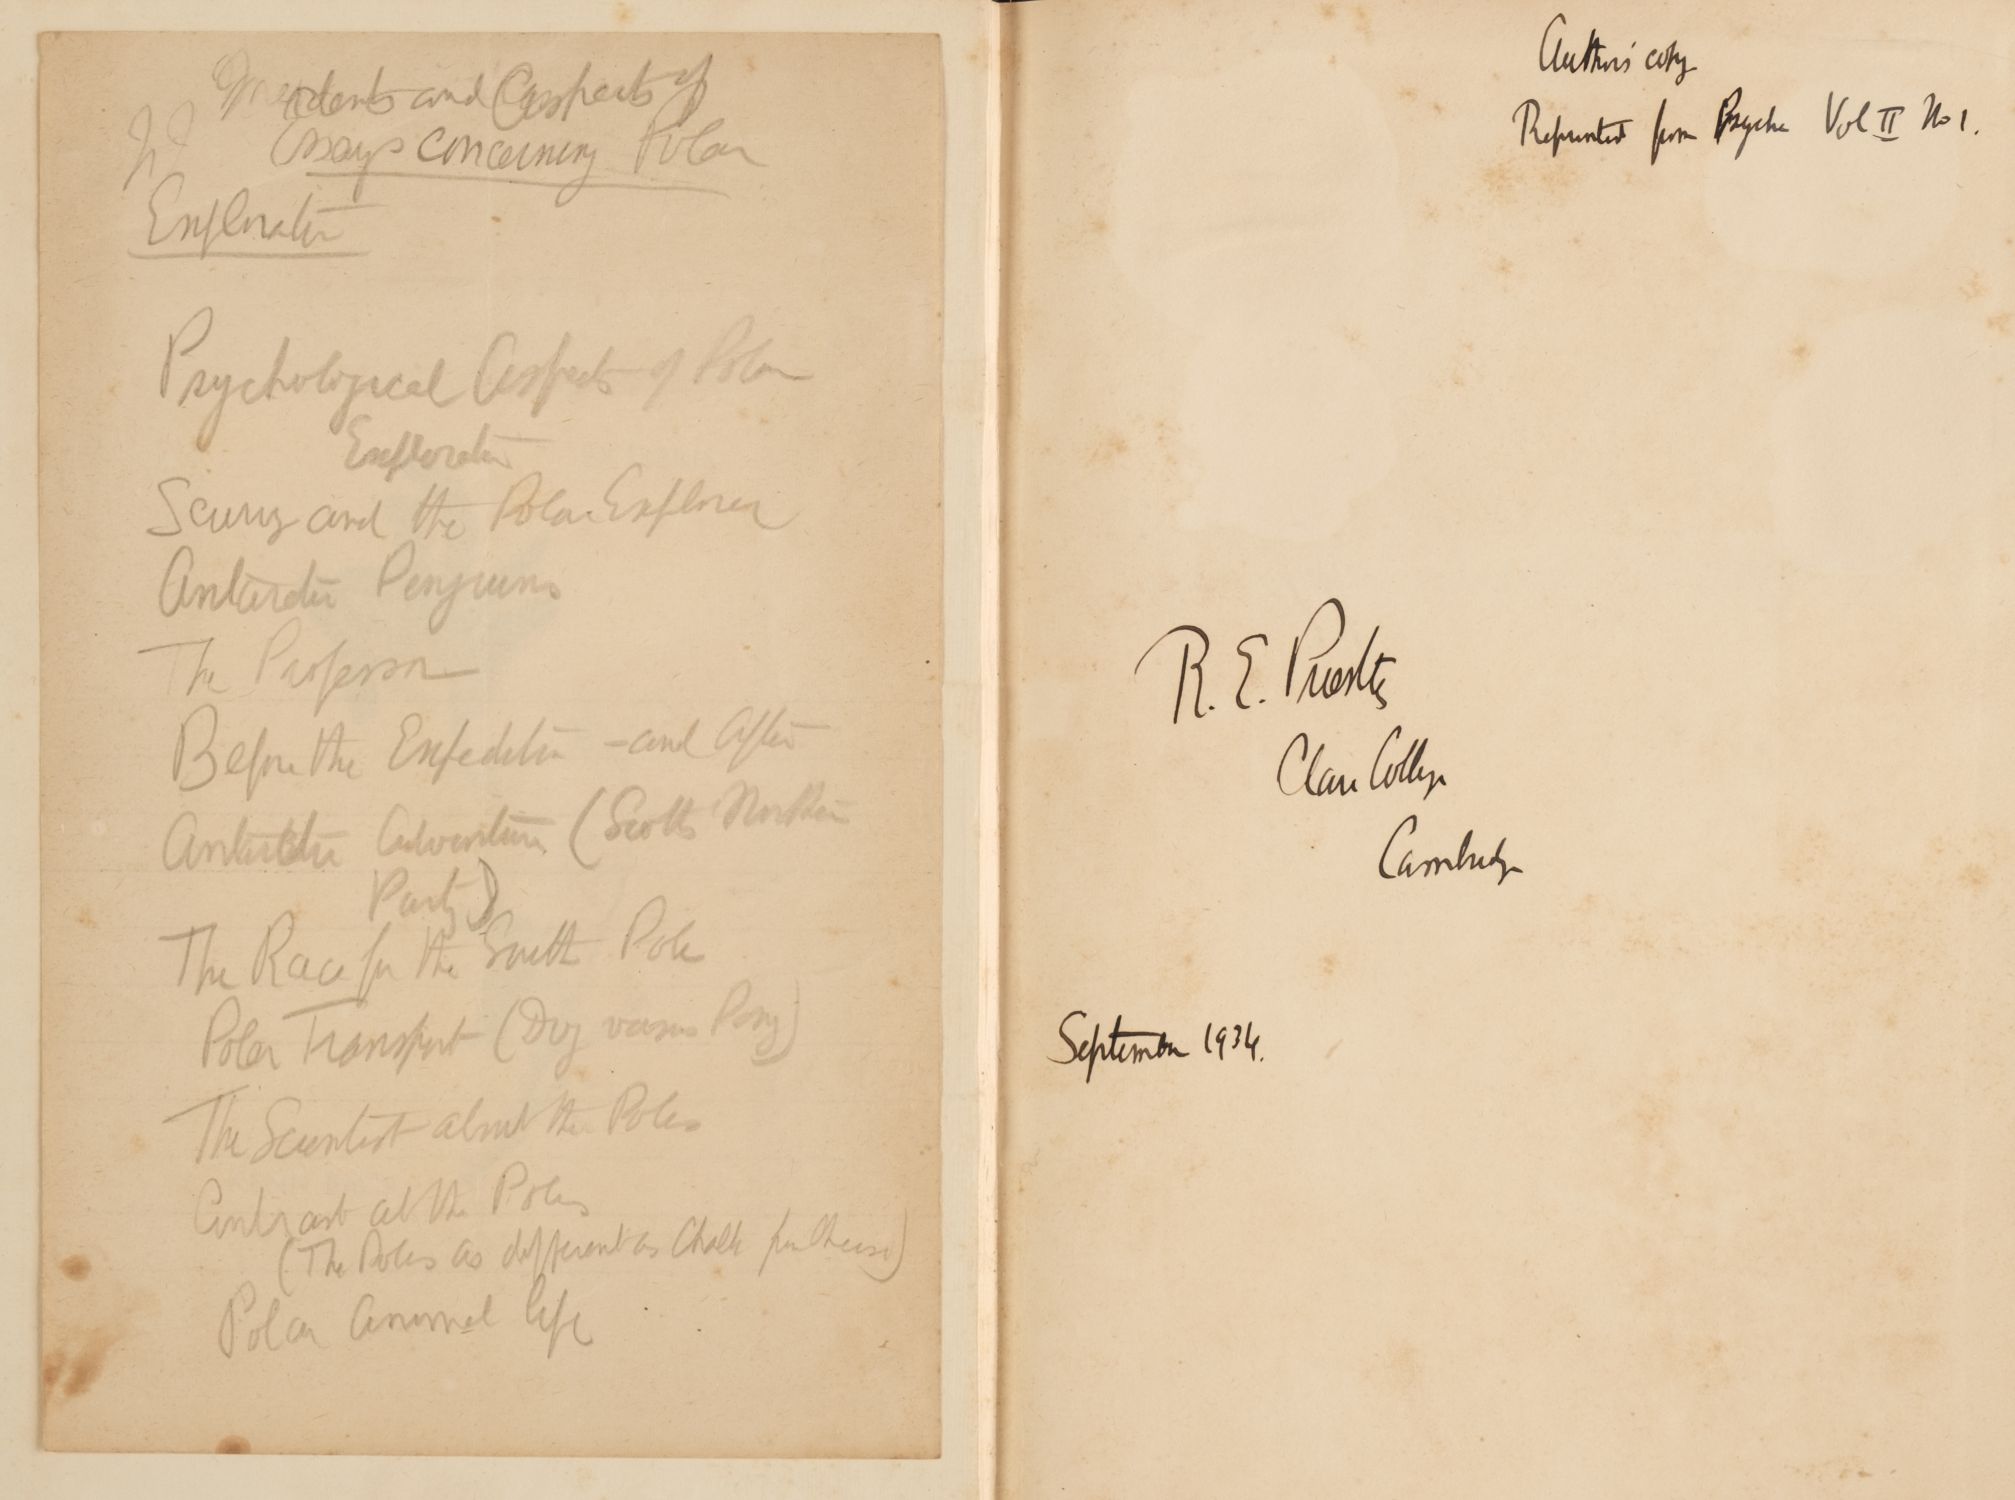 Incidents and Aspects of
Essays concerning Polar
Exploration
Psychological Aspects of Polar
Exploration
Scurvy and the Polar Explorer
Antarctic Penguins
The Professor
Before the Expedition - and After
Antarctic Adventure (Scotts Northern
Party)
The Race for the South Pole
Polar Transport (Dog versus Pony)
The Scientist about the Poles
Contrast at the Poles
(The Poles as different as Chalk from Cheese)
Polar Animal life
Author's copy
Reprinted from Psyche Vol II No 1.
R. E. Priestley
Clare College
Cambridge
September 1934.